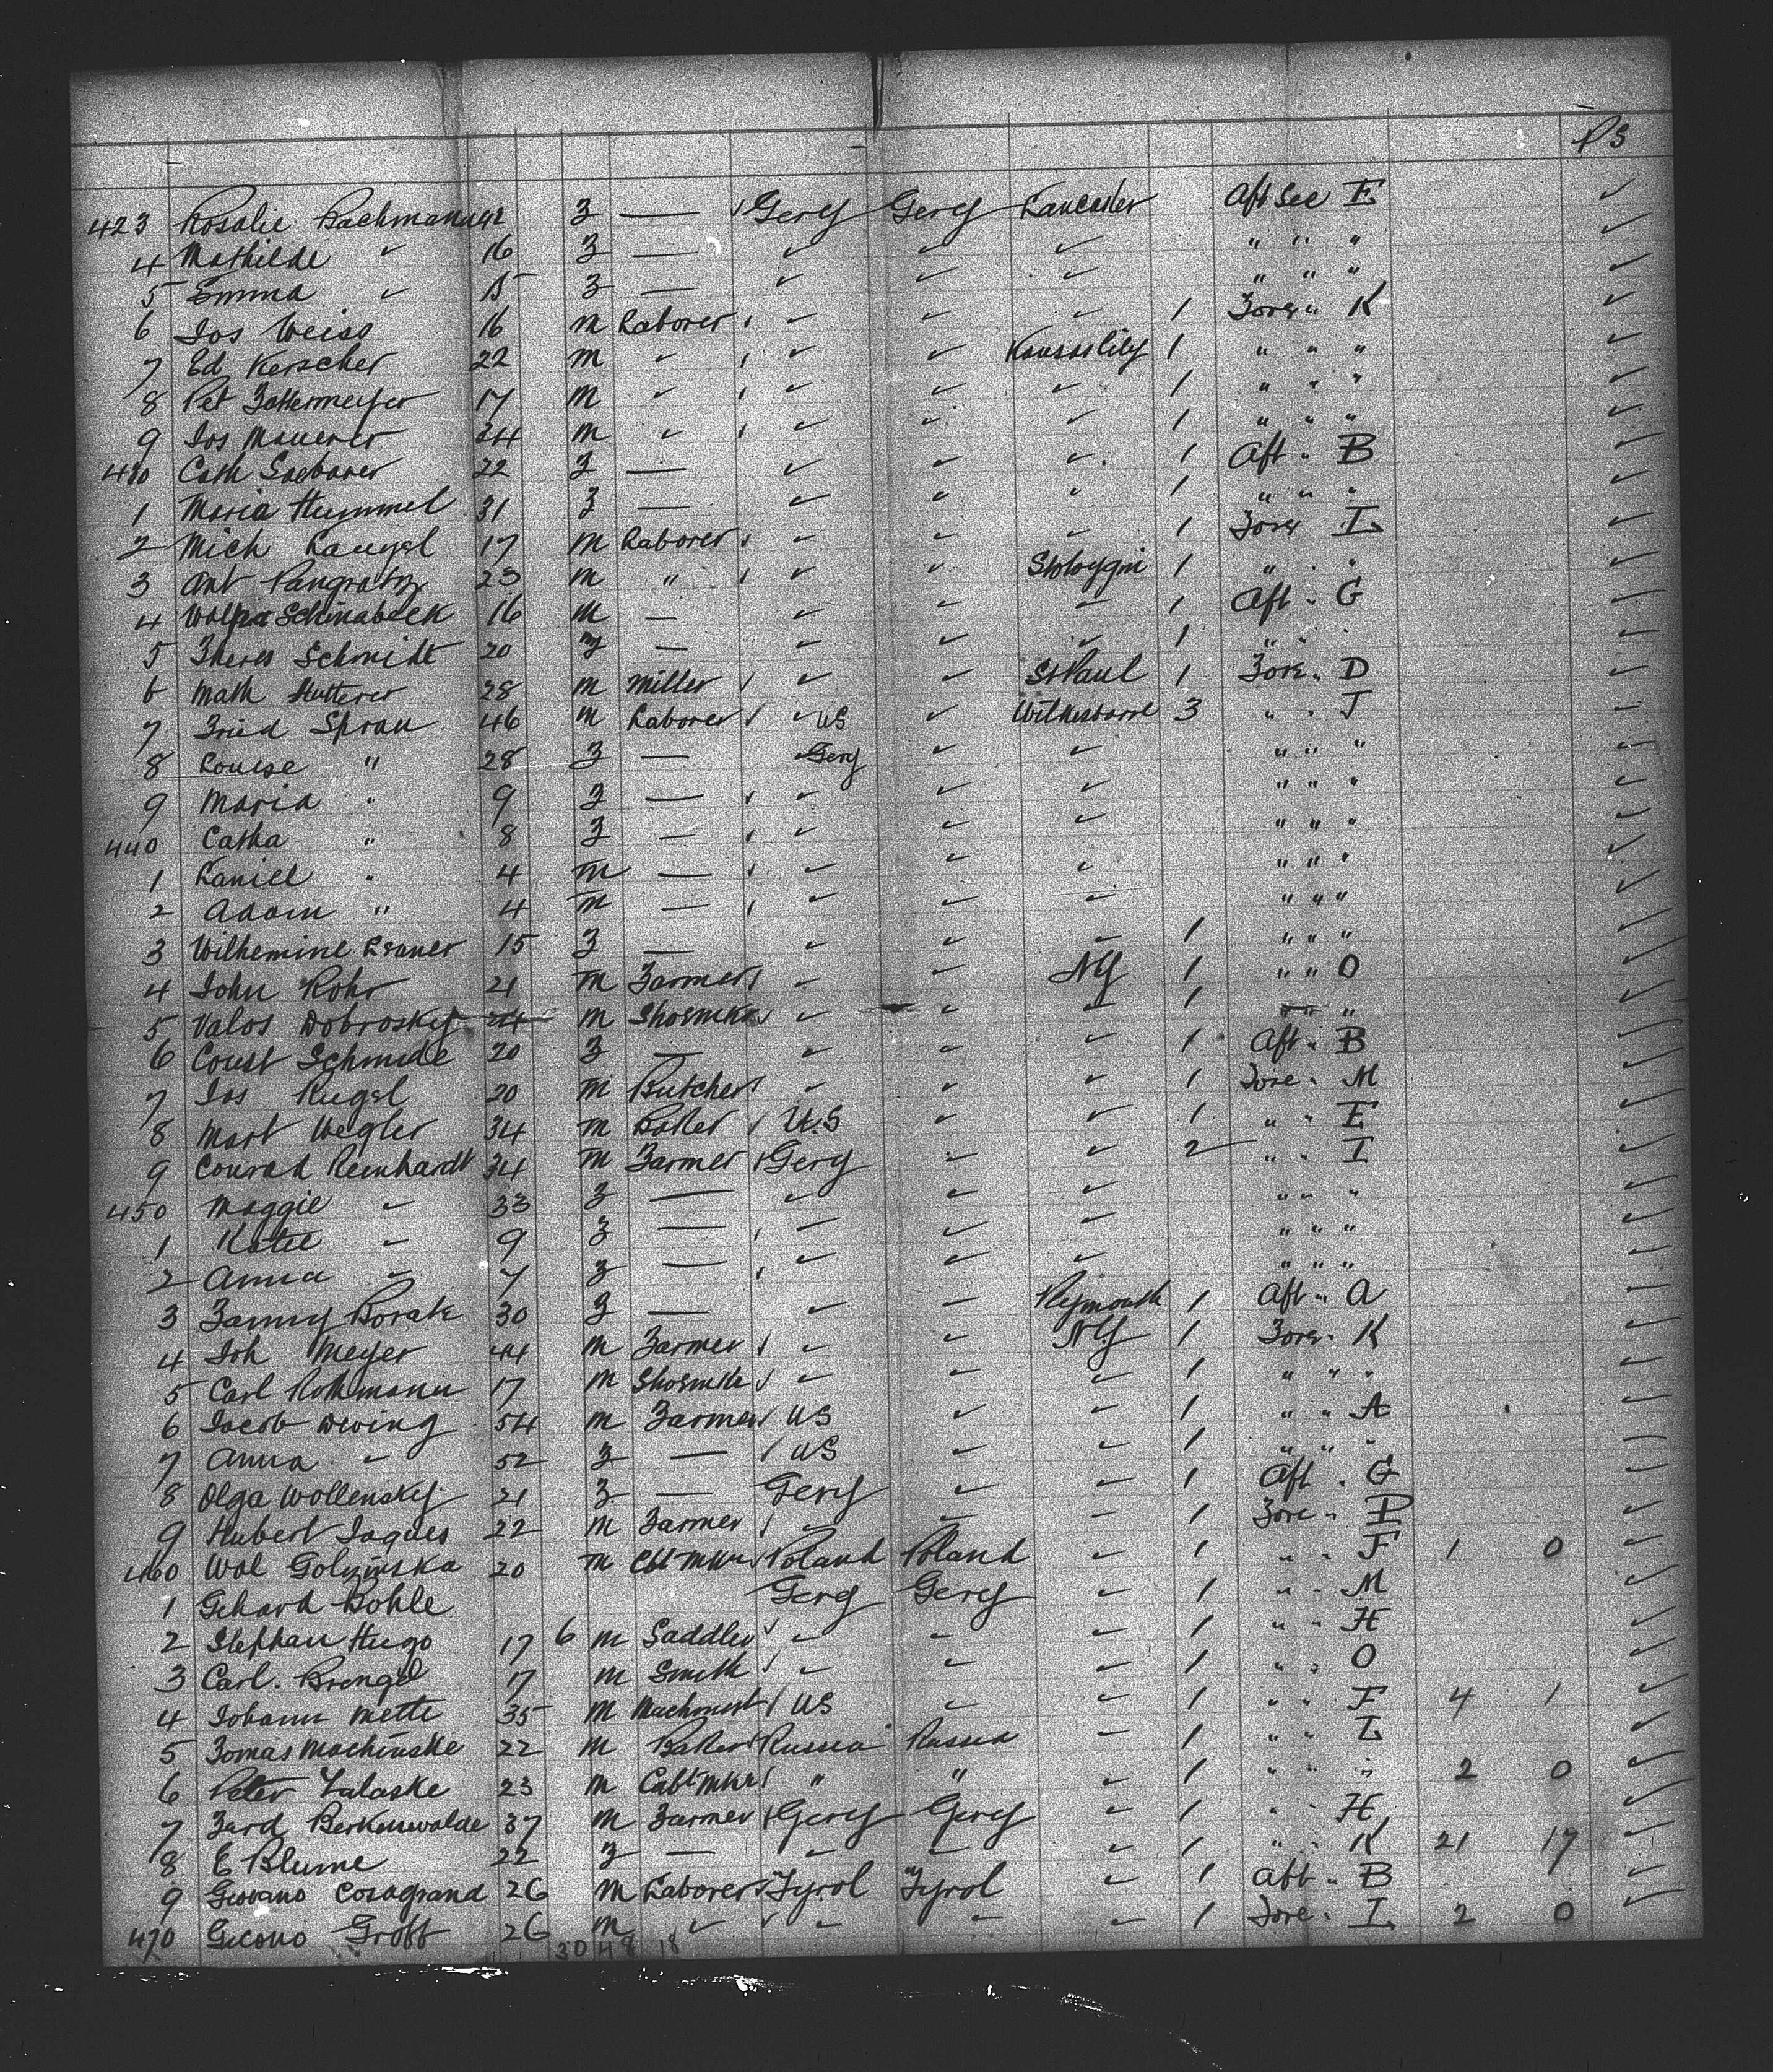 P S
423 Rosalie Bachmann 42 F — Gery Gery Lancaster Aft Sec E ✓
4 Mathilde ✓ 16 F — ✓ ✓ ✓ " " " ✓
5 Emma ✓ 15 F — ✓ ✓ ✓ " " " ✓
6 Jos Weiss 16 m Laborer ✓ ✓ ✓ 1 Fore " K ✓
7 Ed Kerscher 22 m ✓ ✓ ✓ Kansas City 1 " " " ✓
8 Pet 17 m ✓ ✓ ✓ ✓ 1 " " " ✓
9 Jos Mauerer 34 m ✓ ✓ ✓ ✓ 1 " " " ✓
430 Cath 22 F — ✓ ✓ ✓ 1 Aft " B ✓
1 Maria Hummel 31 F — ✓ " " 1 " " " ✓
2 Mich 17 m Laborer ✓ ✓ ✓ 1 Fore L ✓
3 Ant Pangratz 23 m " ✓ ✓ 1 " " " ✓
4 Schinabeck 16 m — ✓ ✓ ✓ 1 Aft " G ✓
5 Theres Schmidt 20 F — ✓ ✓ ✓ 1 " " " ✓
6 Math Hutterer 28 m Miller ✓ ✓ St Paul 1 Fore " D ✓
7 Fried Sprau 46 m Laborer ✓ US ✓ Wilkesbarre 3 " " J –
8 Louise " 28 F — Gery ✓ ✓ " " " ✓
9 Maria " 9 F — ✓ ✓ ✓ " " " ✓
440 Catha " 8 F — ✓ ✓ ✓ " " " ✓
1 Daniel " 4 m — ✓ ✓ ✓ " " " ✓
2 Adam " 4 m — ✓ ✓ ✓ " " " ✓
3 Wilhemine 15 F — ✓ ✓ ✓ 1 " " " ✓
4 John Rohr 21 m Farmer ✓ ✓ NY 1 " " O ✓
5 Valos Dobrosky 24 m Shoemkr ✓ ✓ ✓ 1 " " " ✓
6 Const Schmide 20 F — ✓ ✓ ✓ 1 Aft " B ✓
7 Jos Rugel 20 m Butcher ✓ ✓ ✓ 1 Fore " M ✓
8 Mart Wegler 34 m Baker U.S ✓ ✓ 1 " " E ✓
9 Conrad Reinhardt 34 m Farmer Gery ✓ ✓ 2 " " I ✓
450 Maggie ✓ 33 F — ✓ ✓ ✓ " " " ✓
1 Katie ✓ 9 F — ✓ ✓ ✓ " " " ✓
2 Anna ✓ 7 F — ✓ ✓ ✓ " " " ✓
3 Fanny Borak 30 F — ✓ ✓ Plymouth 1 Aft " A ✓
4 Joh Meyer 44 m Farmer ✓ ✓ NY 1 Fore " K ✓
5 Carl Rothmann 17 m Shoemkr ✓ ✓ ✓ 1 " " " ✓
6 Jacob Dwing 54 m Farmer US ✓ ✓ 1 " " A ✓
7 Anna ✓ 52 F — US ✓ ✓ 1 " " " ✓
8 Olga Wollensky 21 F — Gery ✓ ✓ 1 Aft " G ✓
9 Hubert Jaques 22 m Farmer ✓ ✓ ✓ 1 Fore " P ✓
460 Wal Golzinska 20 m Cbt Mkr Poland Poland ✓ 1 " " F 1 0 ✓
1 Gehard Bohle Gery Gery ✓ 1 " " M ✓
2 Stephan Hugo 17 6 m Saddler ✓ ✓ ✓ 1 " " H ✓
3 Carl. Brengel 17 m Smith ✓ ✓ ✓ 1 " " O ✓
4 Johann Mette 35 m Machinest US ✓ ✓ 1 " " F 4 1 ✓
5 Tomas Machinske 22 m Baker Russia Russia ✓ 1 " " L ✓
6 Peter Zalaske 23 m Cabt Mkr " " ✓ 1 " " " 2 0 ✓
7 Ferd Berkenwalde 37 m Farmer Gery Gery ✓ 1 " " H ✓
8 E Blume 22 F — ✓ ✓ ✓ 1 " " K 21 17 ✓
9 Giovano Casagrand 26 m Laborer Tyrol Tyrol ✓ 1 Aft " B ✓
470 Groff 26 m ✓ ✓ ✓ ✓ 1 Fore " I 2 0 ✓
30 48 18